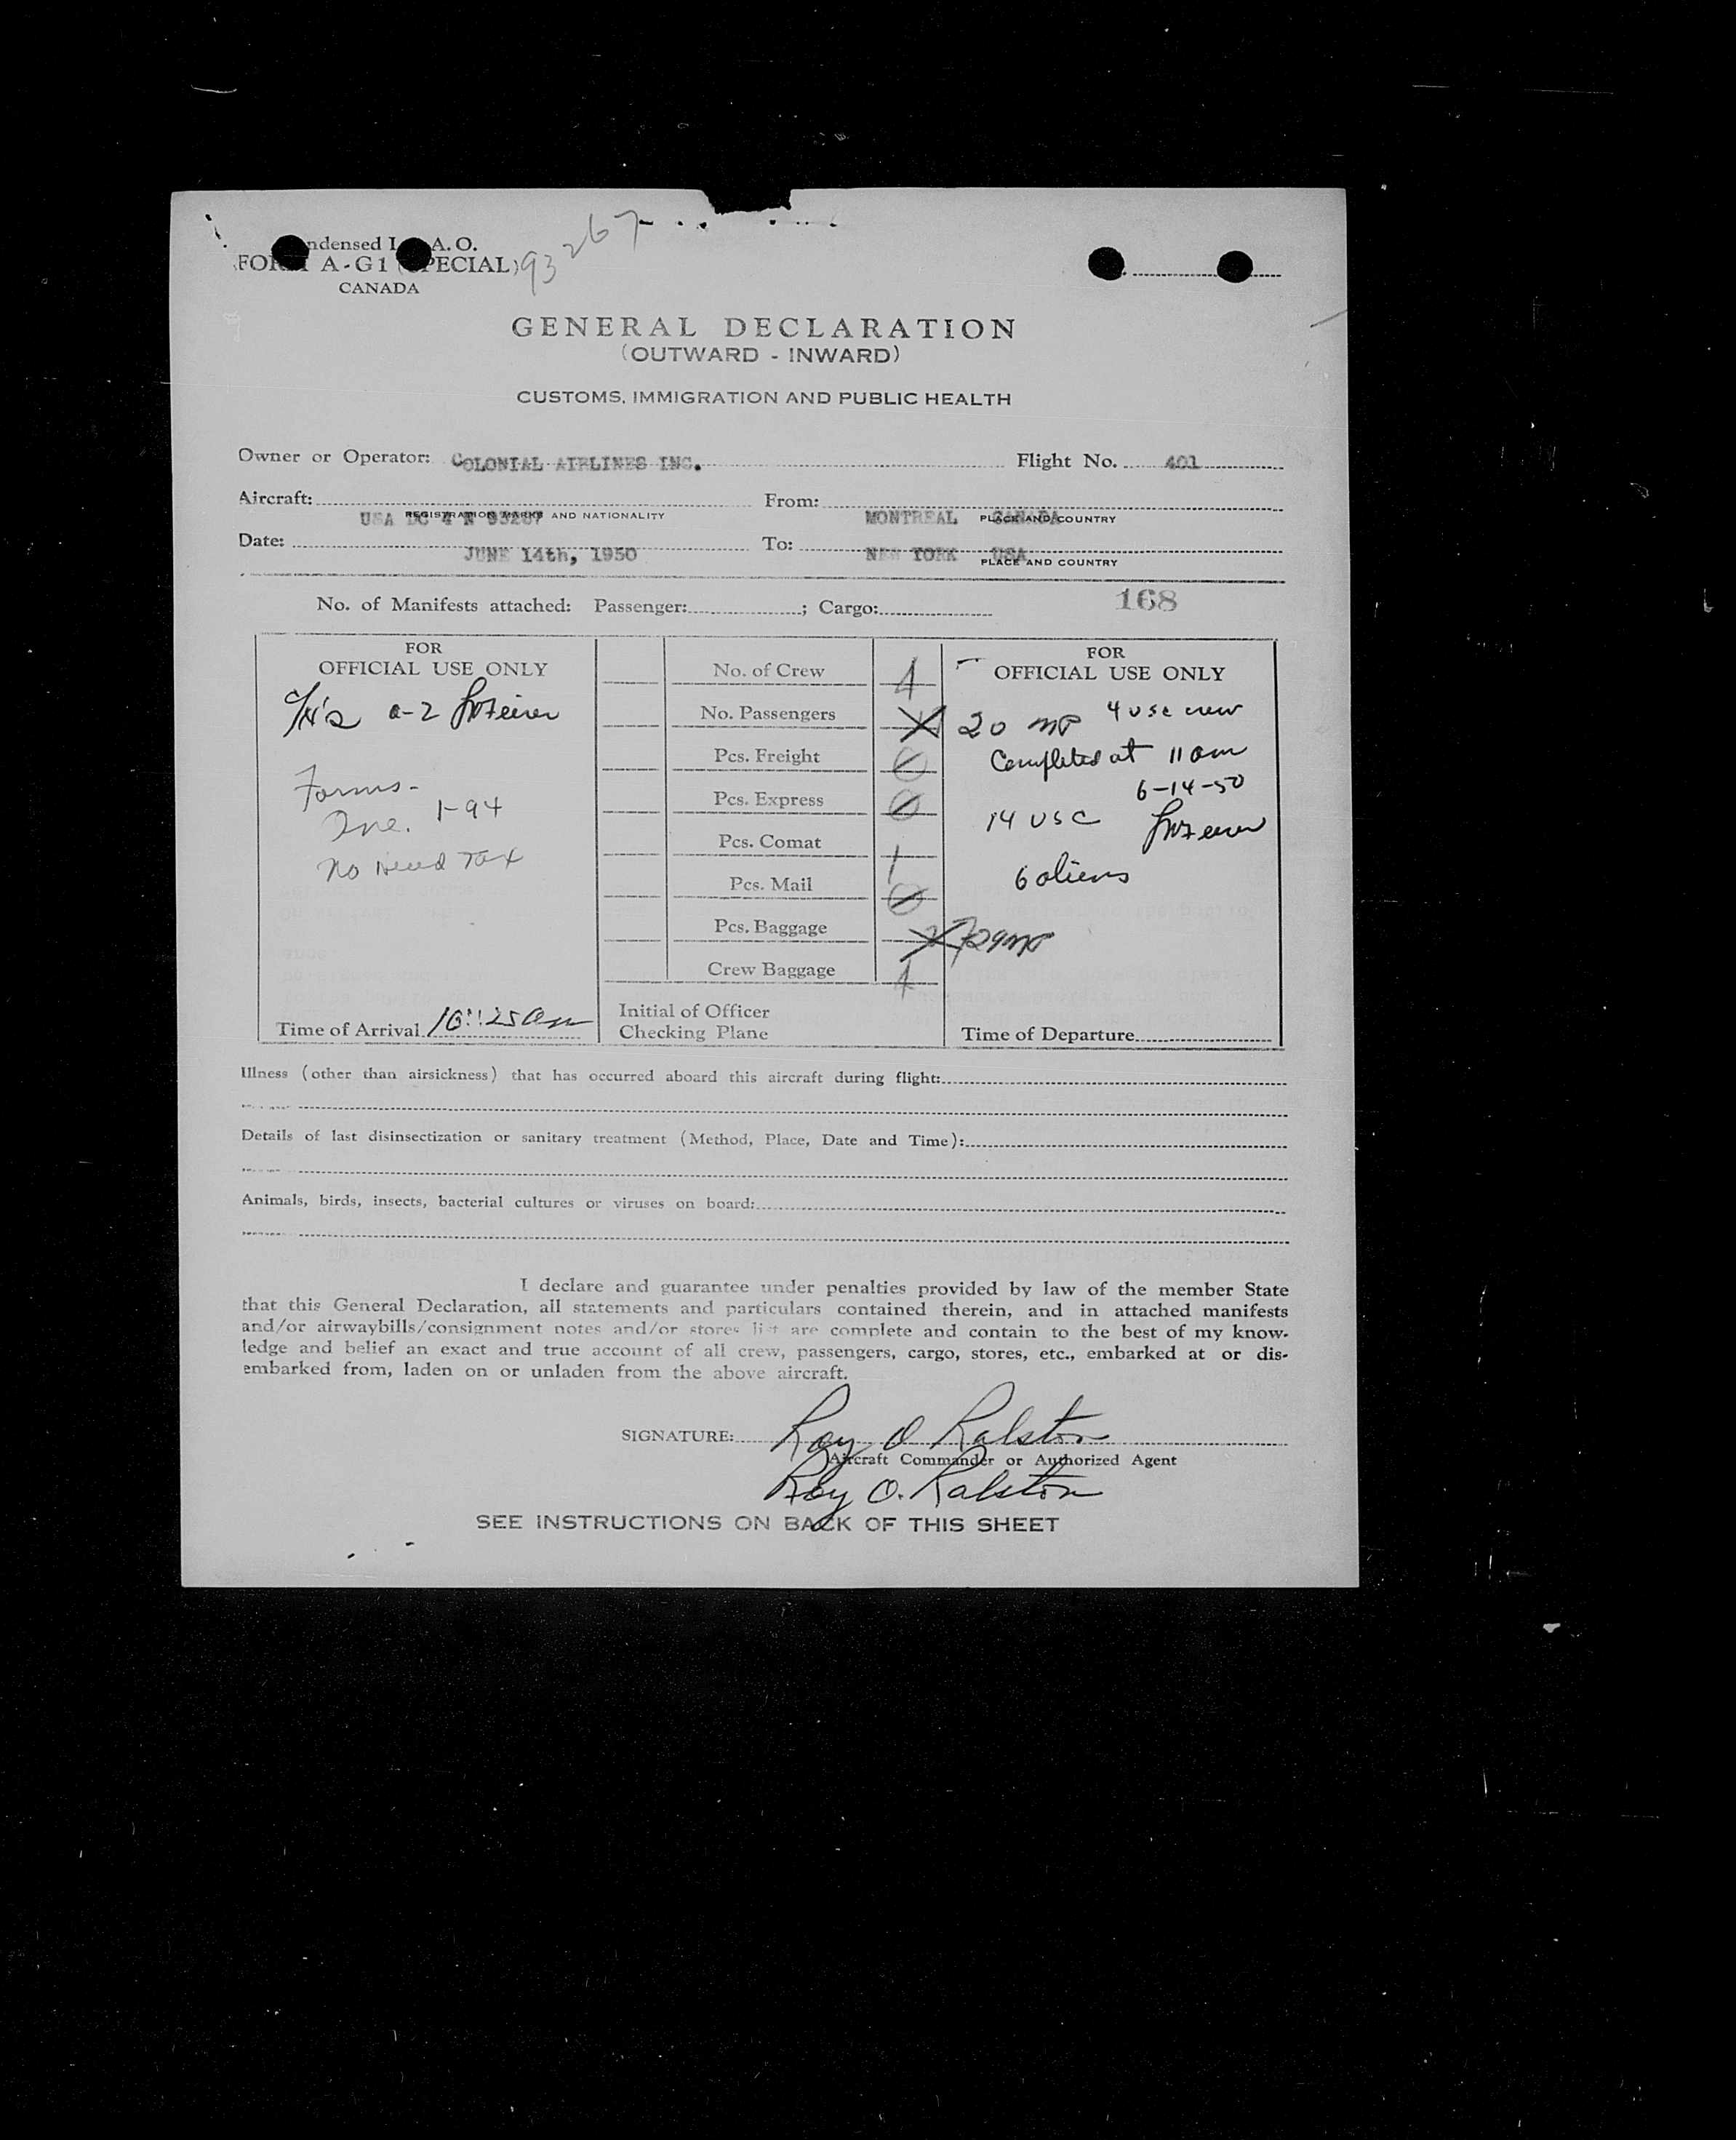 ndensed I. A. O.
FORM A-G1 (SPECIAL) 93267
CANADA
GENERAL DECLARATION
(OUTWARD - INWARD)
CUSTOMS, IMMIGRATION AND PUBLIC HEALTH
Owner or Operator: COLONIAL AIRLINES INC. Flight No. 401
Aircraft: From:
USA DC 4 N 93267 REGISTRATION MARKS AND NATIONALITY MONTREAL CANADA PLACE AND COUNTRY
Date: JUNE 14th, 1950 To: NEW YORK USA
PLACE AND COUNTRY
No. of Manifests attached: Passenger: ; Cargo: 168
FOR
OFFICIAL USE ONLY
a-2
Forms-
I-94
No Head Tax
Time of Arrival 10:25 am
No. of Crew 4
No. Passengers
Pcs. Freight 0
Pcs. Express 0
Pcs. Comat 1
Pcs. Mail 0
Pcs. Baggage
Crew Baggage 4
Initial of Officer
Checking Plane
FOR
OFFICIAL USE ONLY
20 4 usc crew
Completed at 11 am
6-14-50
14 USC
6 aliens
Time of Departure
Illness (other than airsickness) that has occurred aboard this aircraft during flight:
Details of last disinsectization or sanitary treatment (Method, Place, Date and Time):
Animals, birds, insects, bacterial cultures or viruses on board:
I declare and guarantee under penalties provided by law of the member State
that this General Declaration, all statements and particulars contained therein, and in attached manifests
and/or airwaybills/consignment notes and/or stores list are complete and contain to the best of my know-
ledge and belief an exact and true account of all crew, passengers, cargo, stores, etc., embarked at or dis-
embarked from, laden on or unladen from the above aircraft.
SIGNATURE: Roy O Ralston
Aircraft Commander or Authorized Agent
Roy O. Ralston
SEE INSTRUCTIONS ON BACK OF THIS SHEET